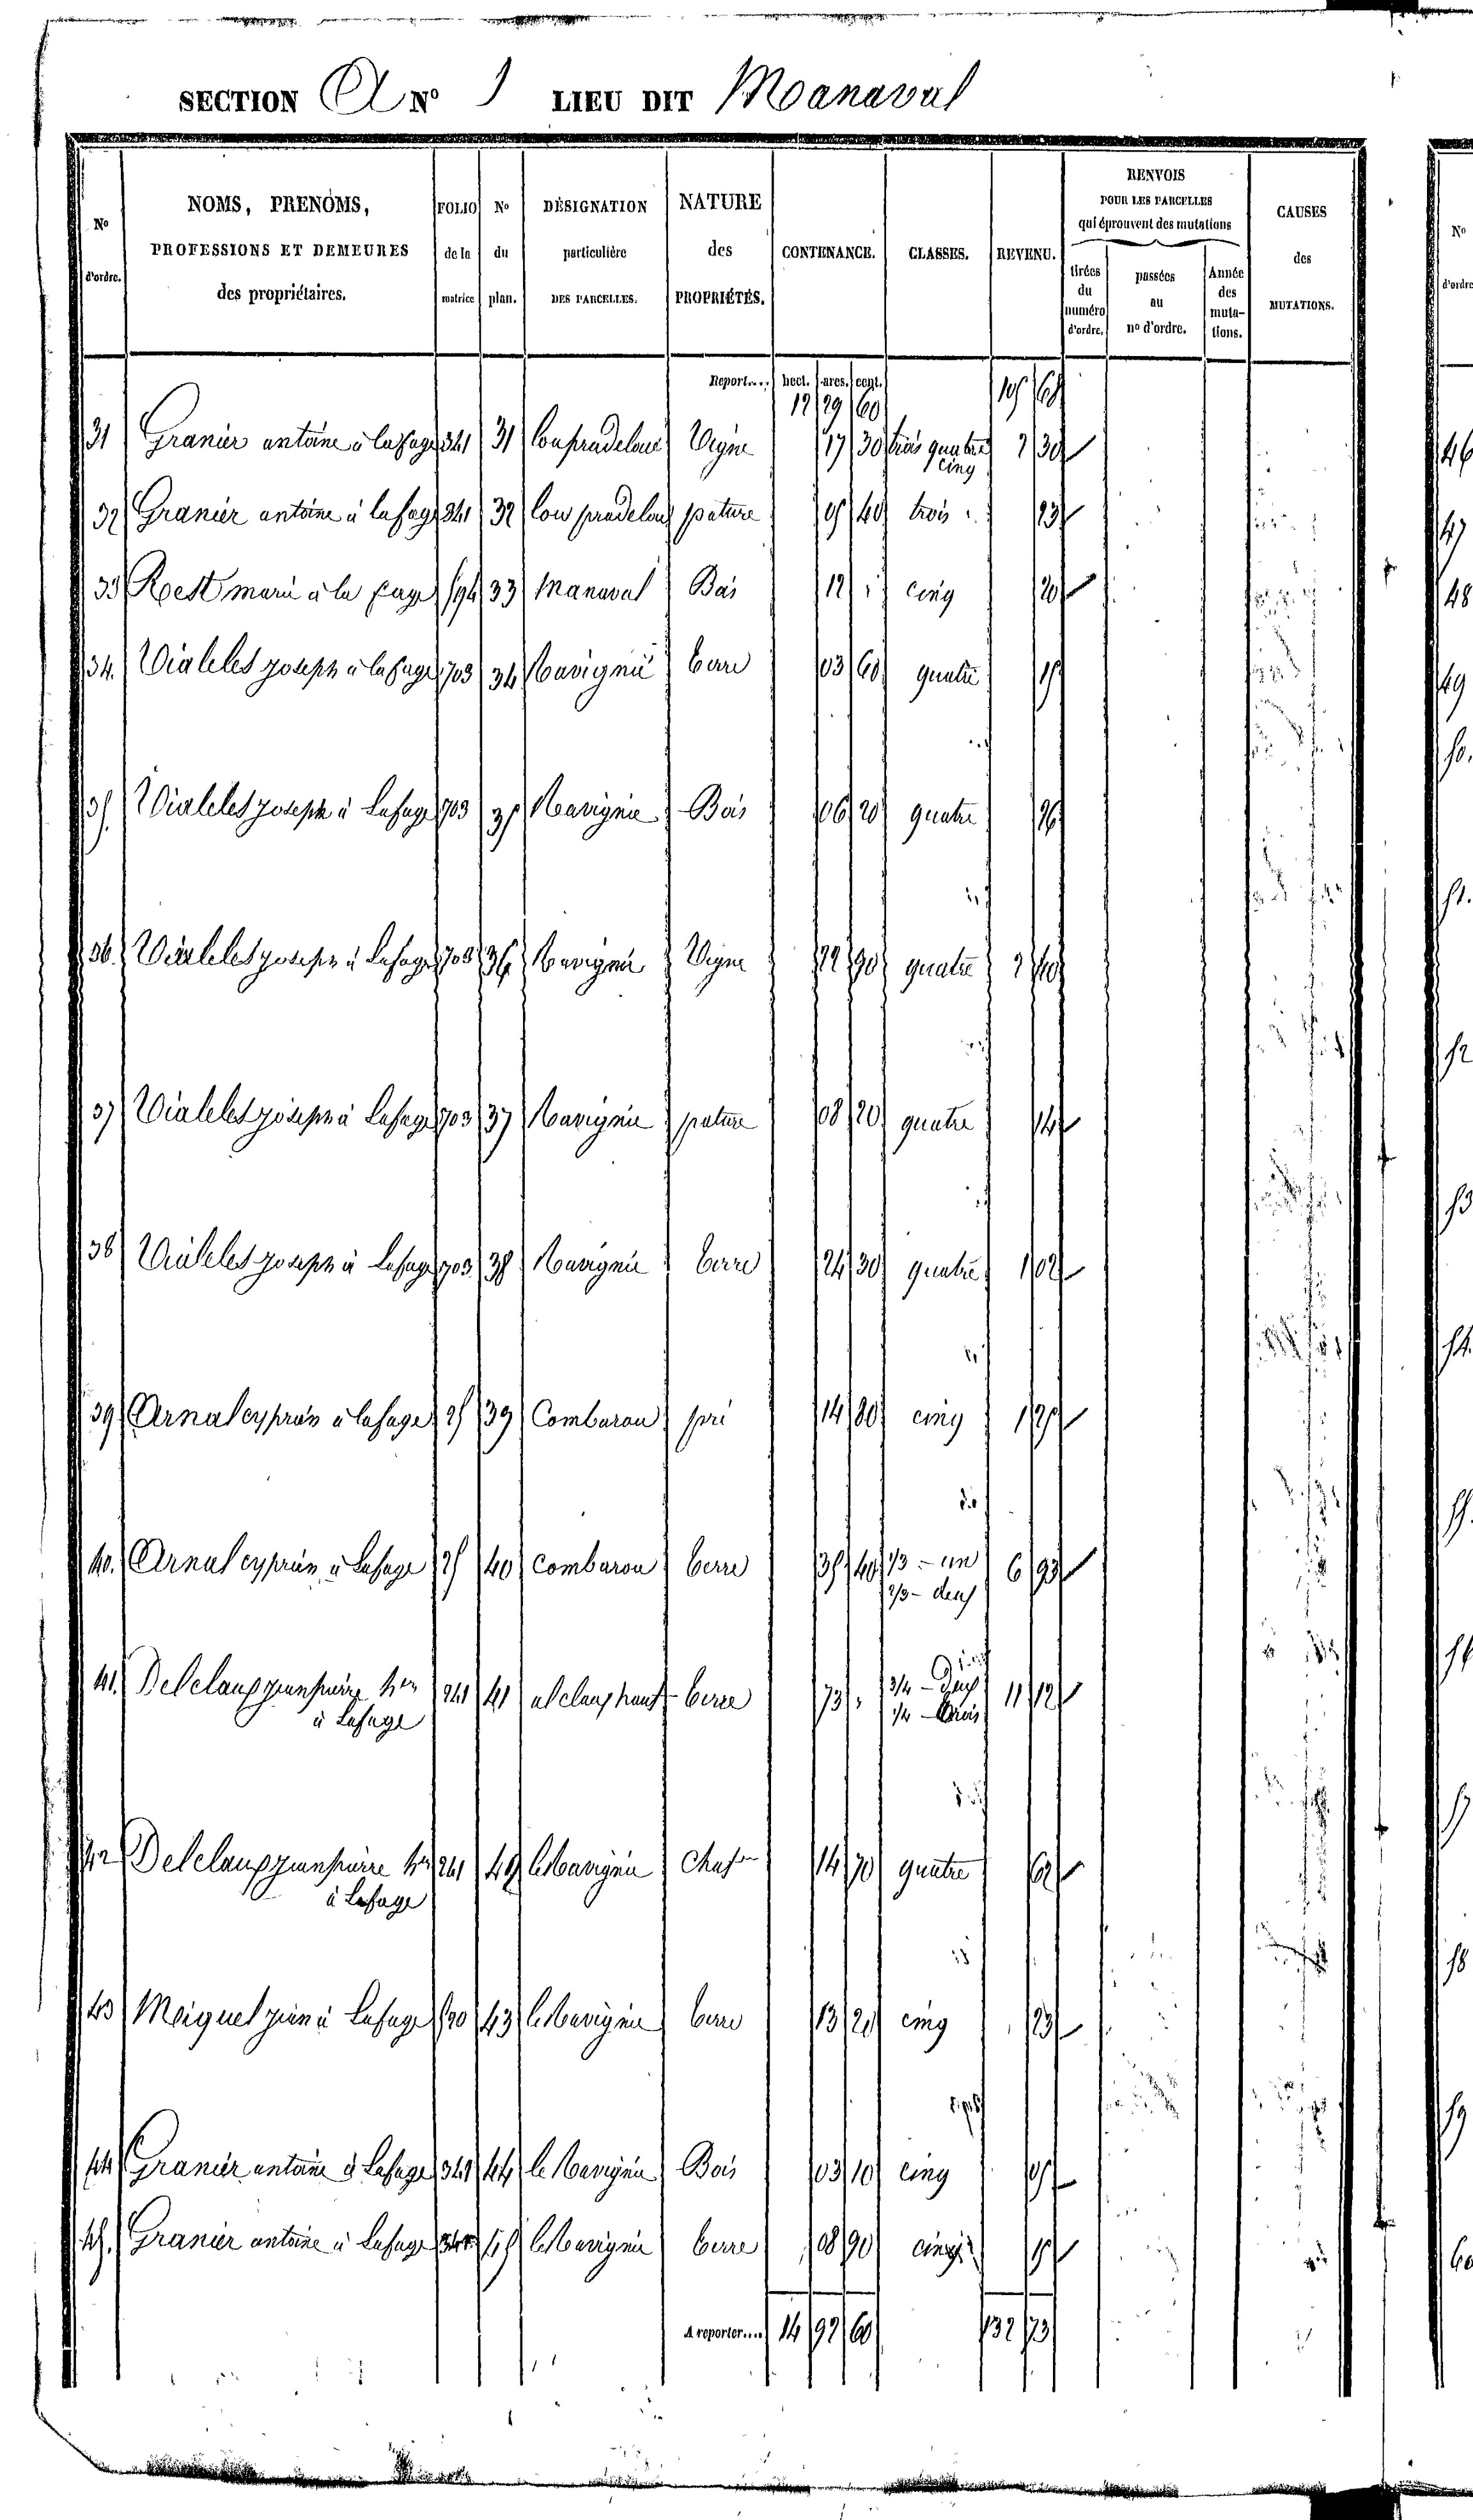 SECTION A N° 1 LIEU DIT Manaval
N° d'ordre. | NOMS, PRENOMS, PROFESSIONS ET DEMEURES des propriétaires. | FOLIO de la matrice | N° du plan. | DÉSIGNATION particulière DES PARCELLES. | NATURE des PROPRIÉTÉS. | CONTENANCE. | CLASSES. | REVENU. | RENVOIS POUR LES PARCELLES qui éprouvent des mutations | CAUSES des MUTATIONS.
tirées du numéro d'ordre. | passées au n° d'ordre. | Année des mutations.
Report.... hect. ares. cent.
12 29 60
31 Granier antoine à lafage 341 31 Vigne 17 30 trois quatre cinq 2 30
32 Granier antoine à lafage 341 32 lou pradelou pature 05 40 trois 23
33 Rest marie à la fage 594 33 Manaval Bois 12 " cinq 20
34. Vialeles joseph à lafage 703 34 Mavignié terre 03 60 quatre 15
35. Vialeles joseph à Lafage 703 35 Mavignié Bois 06 20 quatre 26
36. Vialeles joseph à Lafage 703 36 Mavignié Vigne 22 90 quatre 2 40
37 Vialeles joseph à Lafage 703 37 Mavignié pature 08 20 quatre 14
38 Vialeles joseph à Lafage 703 38 Mavignié terre 24 30 quatre 1 02
39 Arnal cyprien à lafage 25 39 Combarou pré 14 80 cinq
40. Arnal cyprien à Lafage 25 40 Combarou terre 35 40 1/3 - un 6 93
2/3 - deux
41. Delclaux jean pierre 241 41 al claux haut terre 73 " 3/4 - Deux 11 12
à Lafage 1/4 - trois
42 Delclaux jean pierre 241 42 le Mavignié Chat 14 70 quatre 62
à Lafage
43 Miquel jean à Lafage 43 le Mavignié terre 13 20 cinq 23
44 Granier antoine à Lafage 341 44 le Mavignié Bois 03 10 cinq 05
45. Granier antoine à Lafage 45 le Mavignié terre 08 90 cinq 15
A reporter.... 14 92 60 132 73
N° d'ordre
46
47
48
49
50.
51.
52
53
54.
55.
56
57
58
59
60